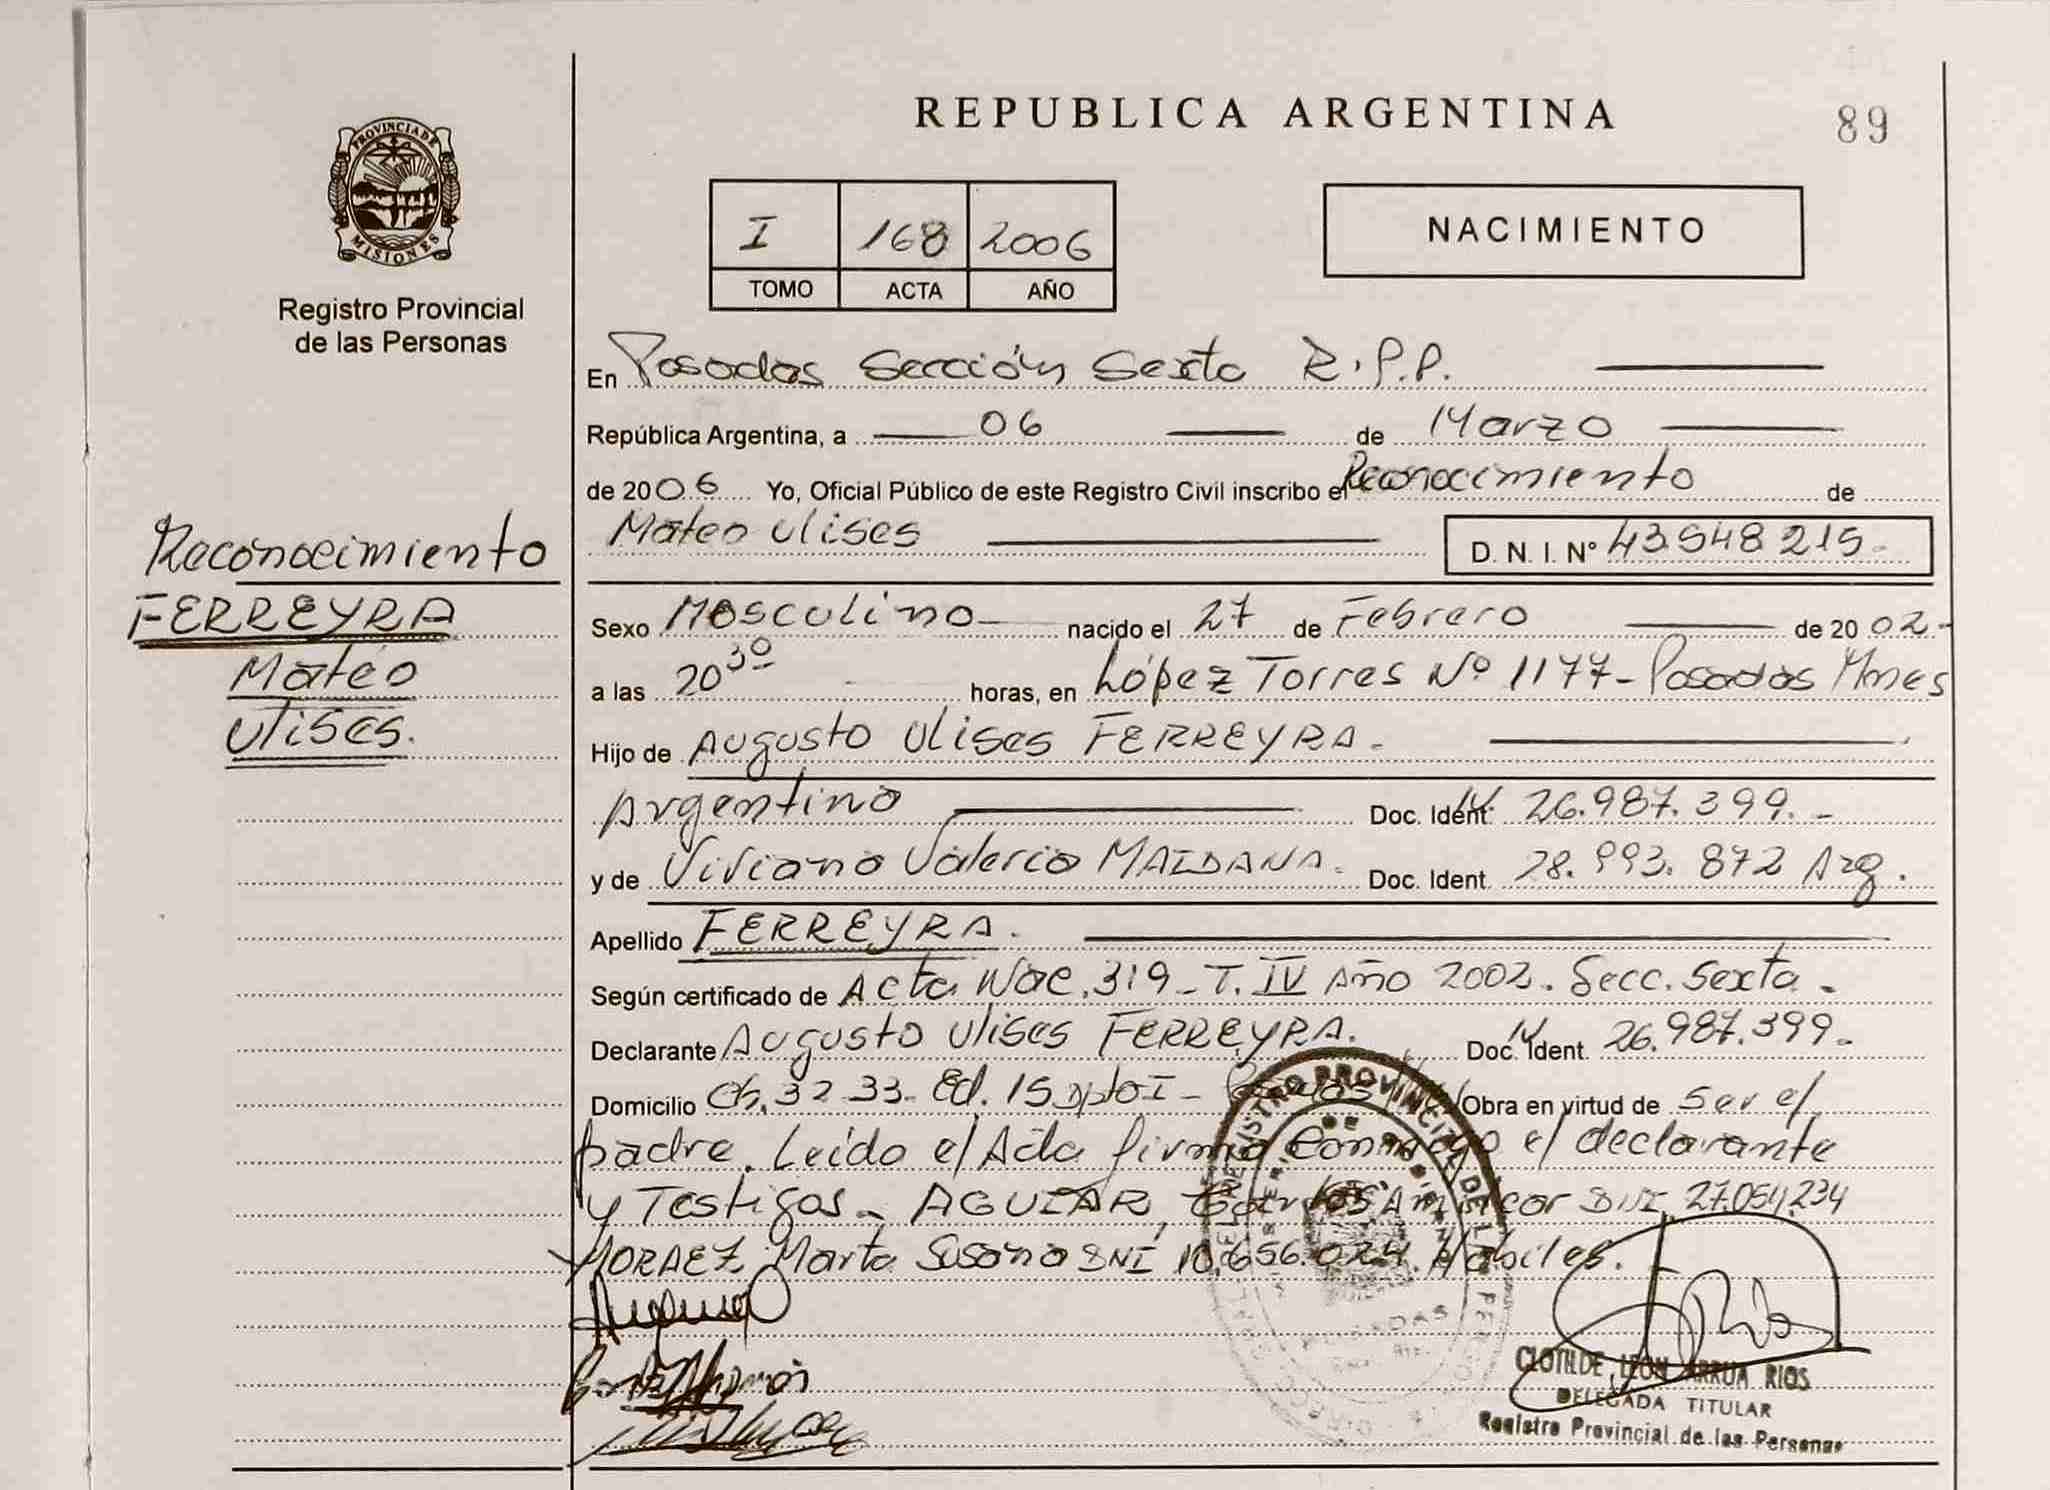 REPUBLICA ARGENTINA
89
PROVINCIA DE
MISIONES
Registro Provincial
de las Personas
I 168 2006
TOMO ACTA AÑO
NACIMIENTO
En Posadas Sección Sexta R.P.P.
República Argentina, a 06 de Marzo
de 2006 Yo, Oficial Público de este Registro Civil inscribo el Reconocimiento de
Mateo Ulises D. N. I. N° 43.548.215-
Reconocimiento
FERREYRA
Mateo
Ulises.
Sexo Masculino nacido el 27 de Febrero de 2002.-
a las 20 30 horas, en López Torres Nº 1177- Posadas Mnes
Hijo de Augusto Ulises FERREYRA.
Argentino Doc. Ident. 26.987.399.-
y de Viviana Valeria MAIDANA. Doc. Ident. 28.993.872 Arg.
Apellido FERREYRA.
Según certificado de Acta Nac. 319- T. IV Año 2002. Secc. Sexta.
Declarante Augusto Ulises FERREYRA. Doc. Ident. 26.987.399.-
Domicilio Ch. 32 33. Ed. 15 Dpto I - Obra en virtud de ser el
padre. Leído el Acta firma conmigo el declarante
y Testigos- AGUIAR, Carlos Amilcor DNI. 27.054.234
MORAEZ Marta Susana DNI 10.656.024. Hábiles.
CLOTILDE LEON ARRUA RIOS
DELEGADA TITULAR
Registro Provincial de las Personas